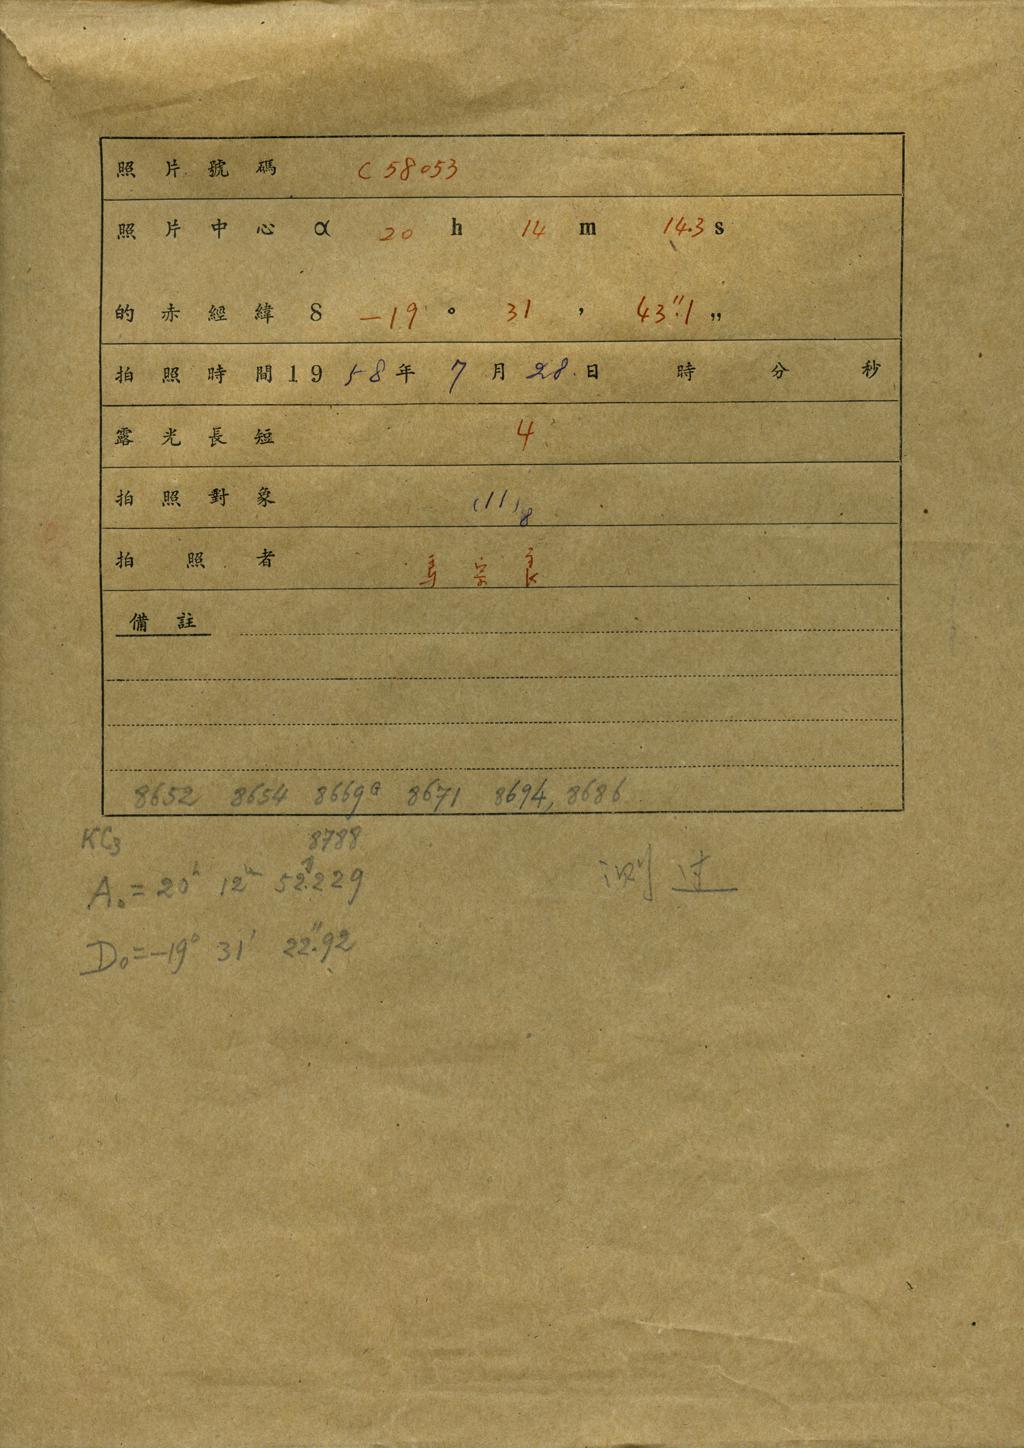 照片號碼 C 58053
照片中心 α 20 h 14 m 14.3 s
的赤經緯 δ -19 ° 31 ' 43".1 "
拍照時間19 58 年 7 月 28 日 時 分 秒
露光長短 4
拍照對象 (11)8
拍照者 馬宗良
備註
8652 8654 8669a 8671 8694, 8686
KC3 8788
A₀ = 20h 12m 52s.229
测过
D₀ = -19° 31' 22".92